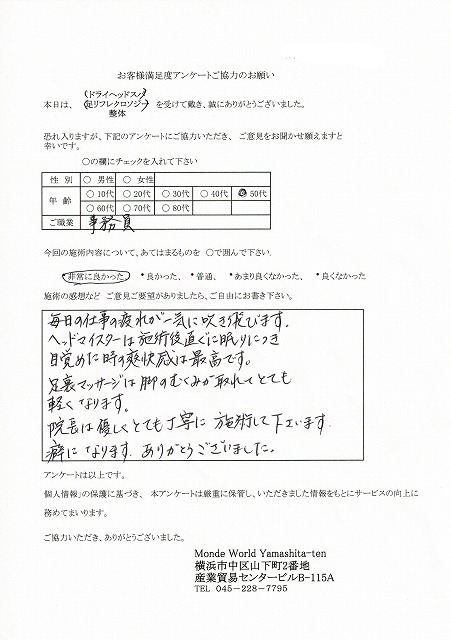 お客様満足度アンケートご協力のお願い
(ドライヘッドスパ)
本日は、 (足リフレクロソジー) を受けて戴き、誠にありがとうございました。
整体
恐れ入りますが、下記のアンケートにご協力いただき、ご意見をお聞かせ願えますと
幸いです。
○の欄にチェックを入れて下さい
性 別 ○ 男性 ○ 女性
年 齢 ○ 10代 ○ 20代 ○ 30代 ○ 40代 ○ 50代
○ 60代 ○ 70代 ○ 80代
ご職業 事務員
今回の施術内容について、あてはまるものを ○で囲んで下さい.
・非常に良かった ・良かった、 ・普通、 ・あまり良くなかった、 ・良くなかった
施術の感想など ご意見ご要望がありましたら、ご自由にお書き下さい。
毎日の仕事の疲れが一気に吹き飛びます.
ヘッドマイスターは施術後直ぐに眠りにつき
目覚めた時の爽快感は最高です。
足裏マッサージは脚のむくみが取れてとても
軽くなります。
院長は優しくとても丁寧に施術して下さいます.
癖になります. ありがとうございました。
アンケートは以上です。
個人情報」の保護に基づき、 本アンケートは厳重に保管し、いただきました情報をもとにサービスの向上に
務めてまいります。
ご協力いただき、ありがとうございました。
Monde World Yamashita-ten
横浜市中区山下町2番地
産業貿易センタービルB-115A
TEL 045-228-7795